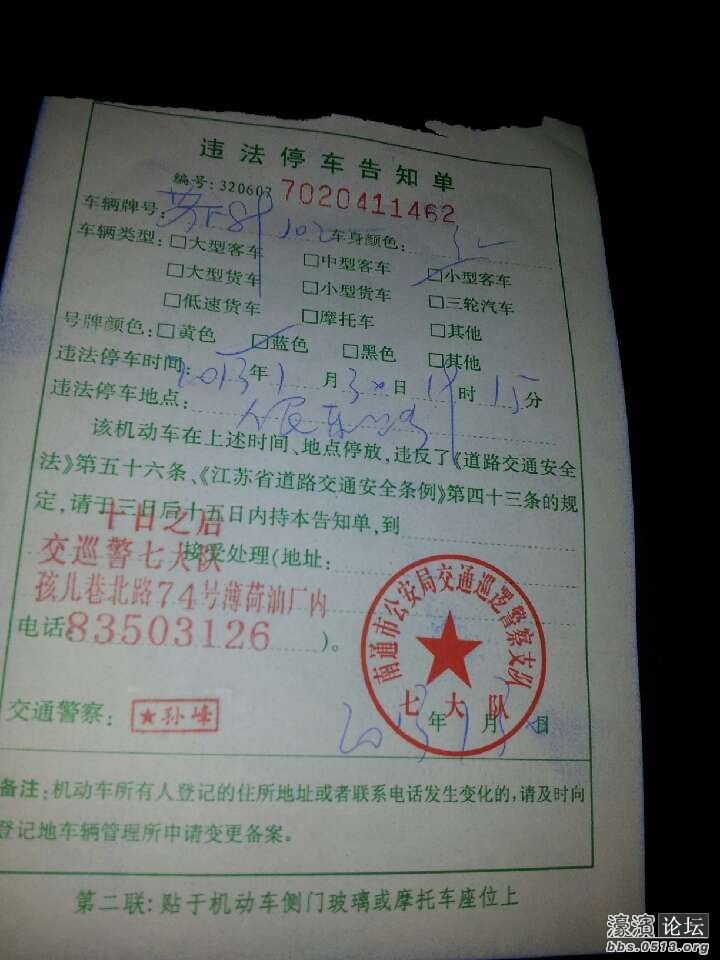 违法停车告知单
编号:320602 7020411462
车辆牌号: 苏F 车身颜色:
车辆类型: □大型客车 □中型客车 □小型客车
□大型货车 □小型货车 □三轮汽车
□低速货车 □摩托车 □其他
号牌颜色: □黄色 □蓝色 □黑色 □其他
违法停车时间: 2013年1月30日18时15分
违法停车地点: 人民东路
该机动车在上述时间、地点停放,违反了《道路交通安全
法》第五十六条、《江苏省道路交通安全条例》第四十三条的规
定,请于三日后十五日内持本告知单,到
十日之后
接受处理(地址:
交巡警七大队
孩儿巷北路74号薄荷油厂内
电话: 83503126 )。
南通市公安局交通巡逻警察支队
七大队
交通警察: ★孙峰
2013年1月30日
备注:机动车所有人登记的住所地址或者联系电话发生变化的,请及时向
登记地车辆管理所申请变更备案。
第二联:贴于机动车侧门玻璃或摩托车座位上
濠滨论坛
bbs.0513.org